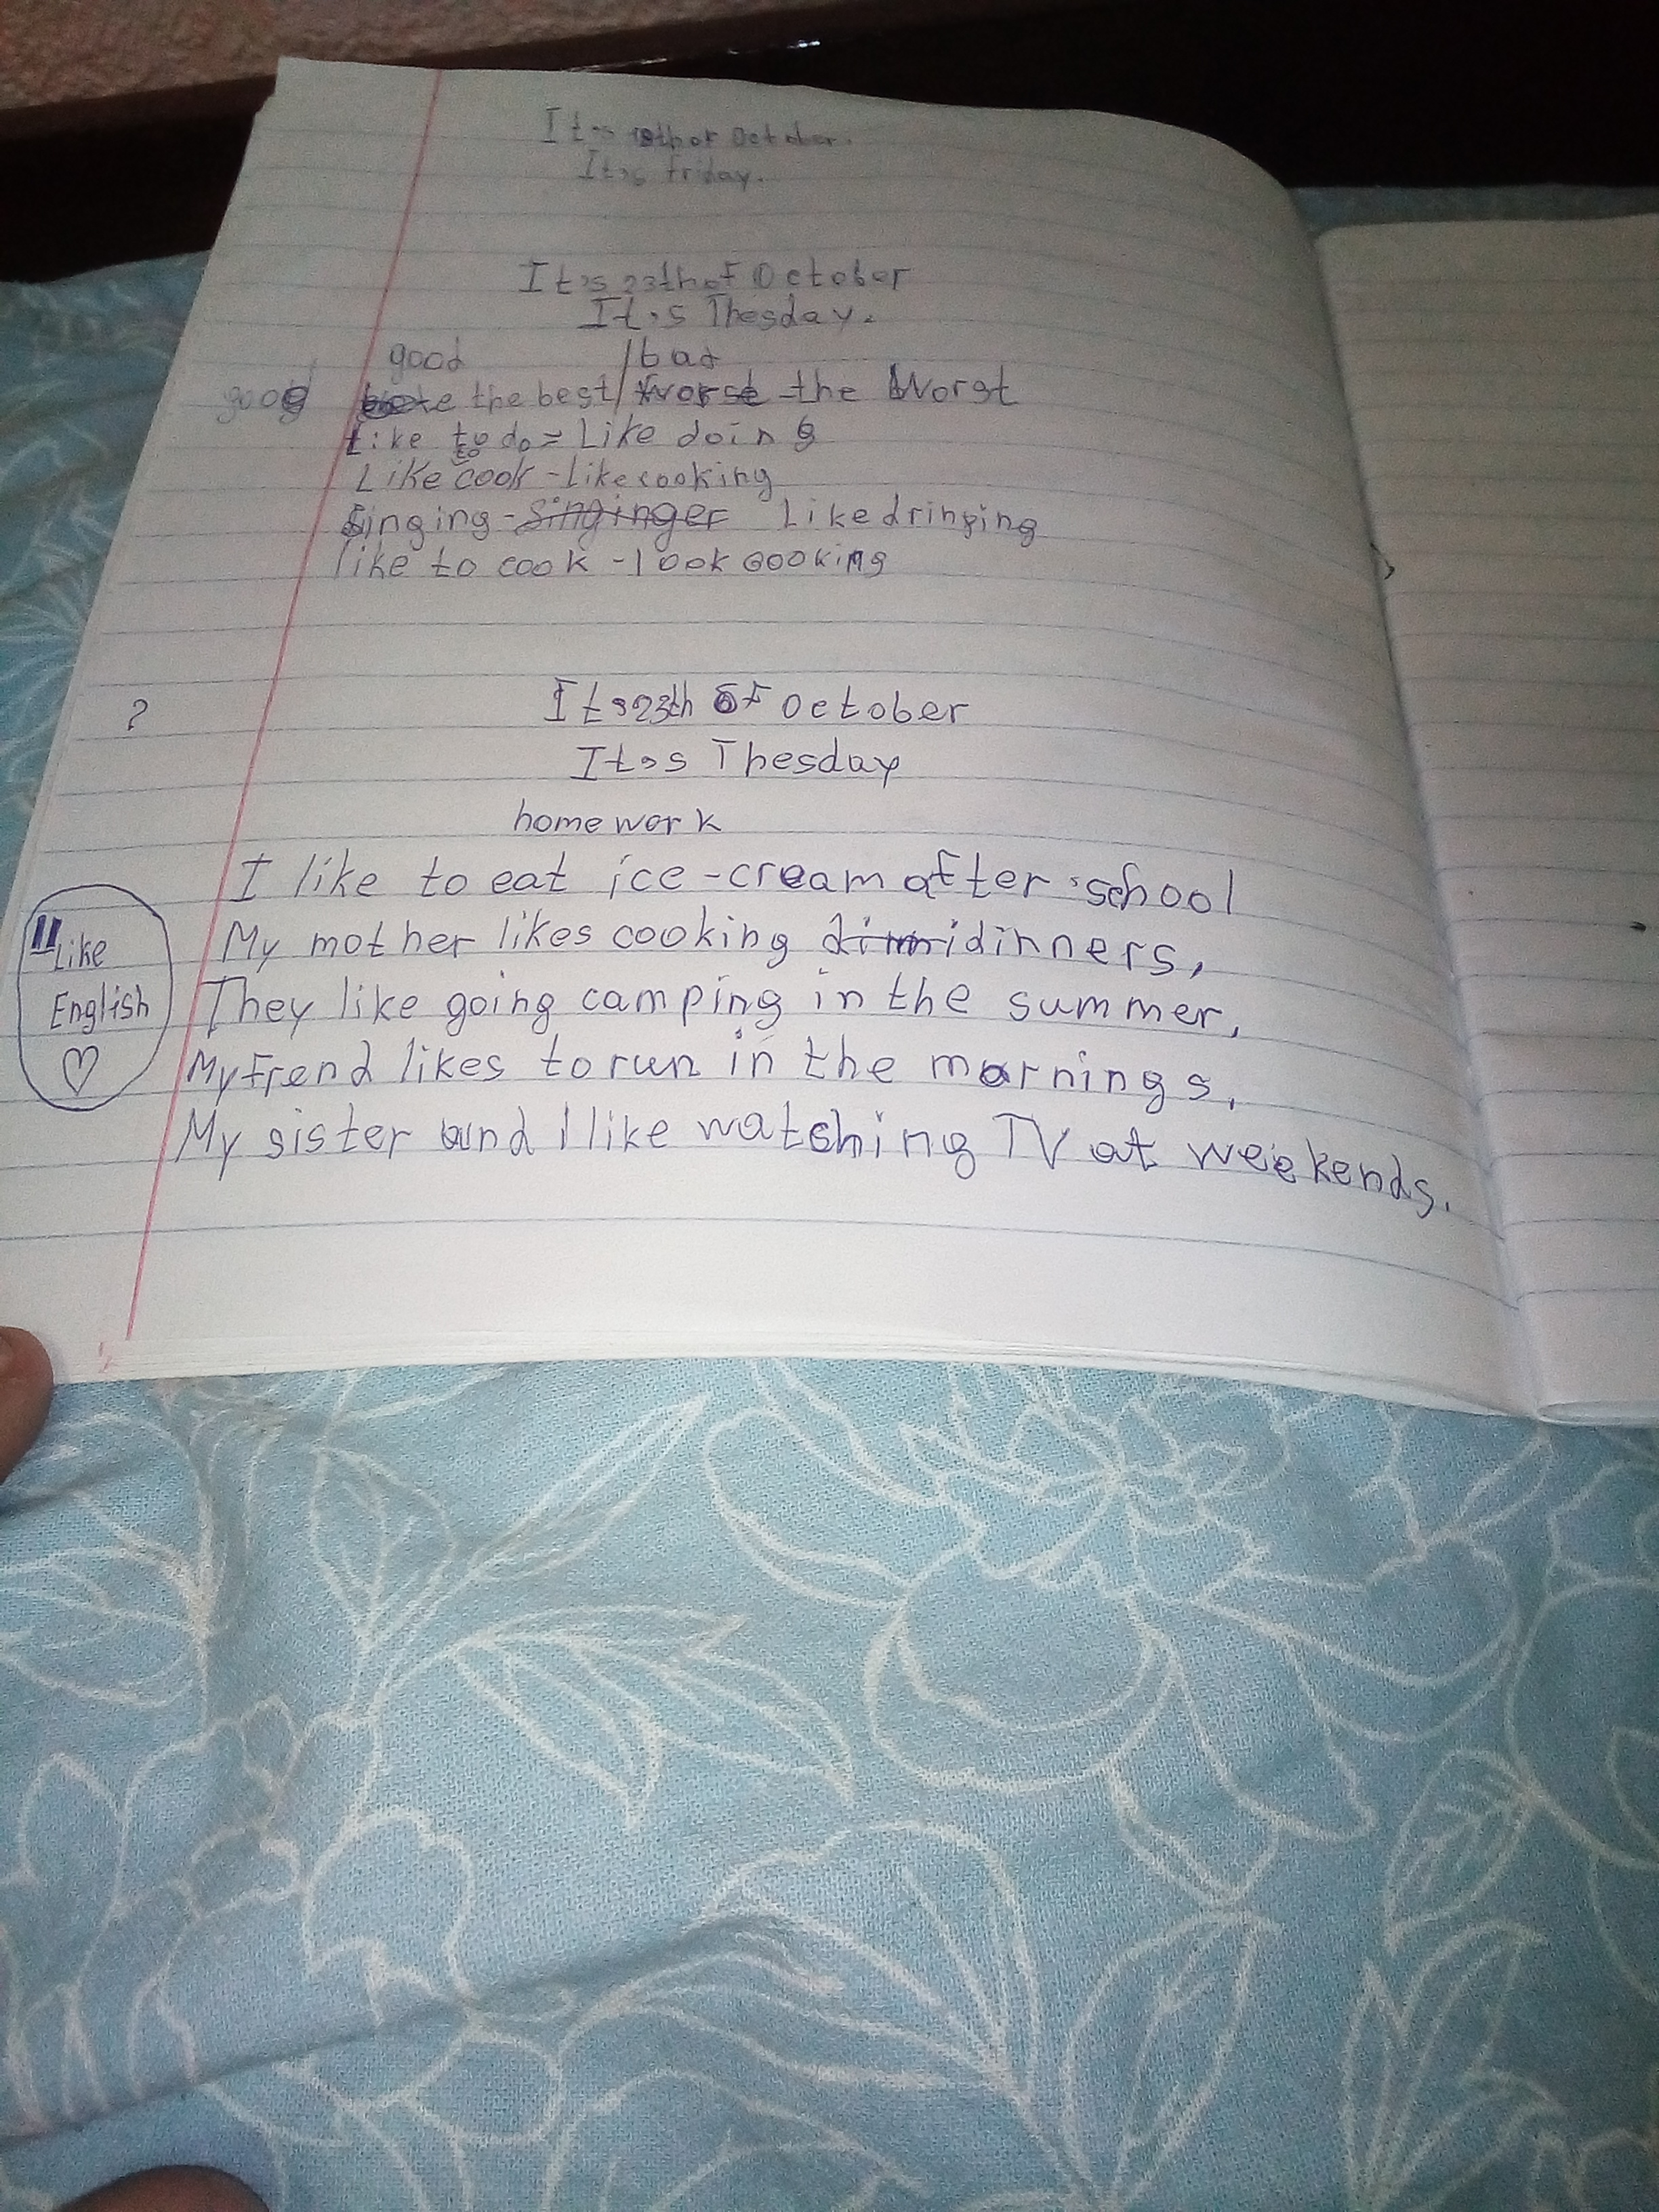 It's 18th of October.
It's Friday.
It's 23th of October
It's Thesday.
good /bad
good the best/ worse the Worst
Like to do = Like doing
to
Like cook - like cooking
Singing - singinger Like drinking
like to cook - look cooking
?
It's 23th of October
It's Thesday
home work
I like to eat ice-cream after school
My mother likes cooking dinners,
They like going camping in the summer,
My frend likes to run in the mornings,
My sister and I like watching TV at weekends.
Like
English